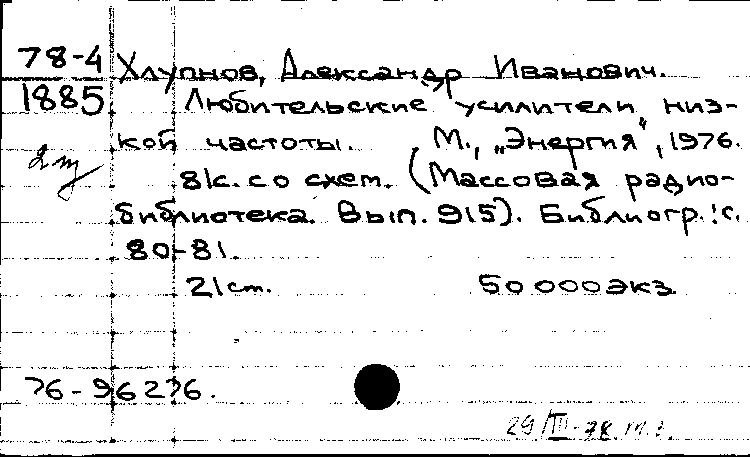 78-4
1885
Хлупнов, Александр Иванович.
Любительские усилители низ-
кой частоты. М., „Энергия", 1976.
81с. со схем. (Массовая радио-
библиотека. Вып. 915). Библиогр.: с.
80-81.
21 cm. 50 000 экз
76-96276.
29/III-78.